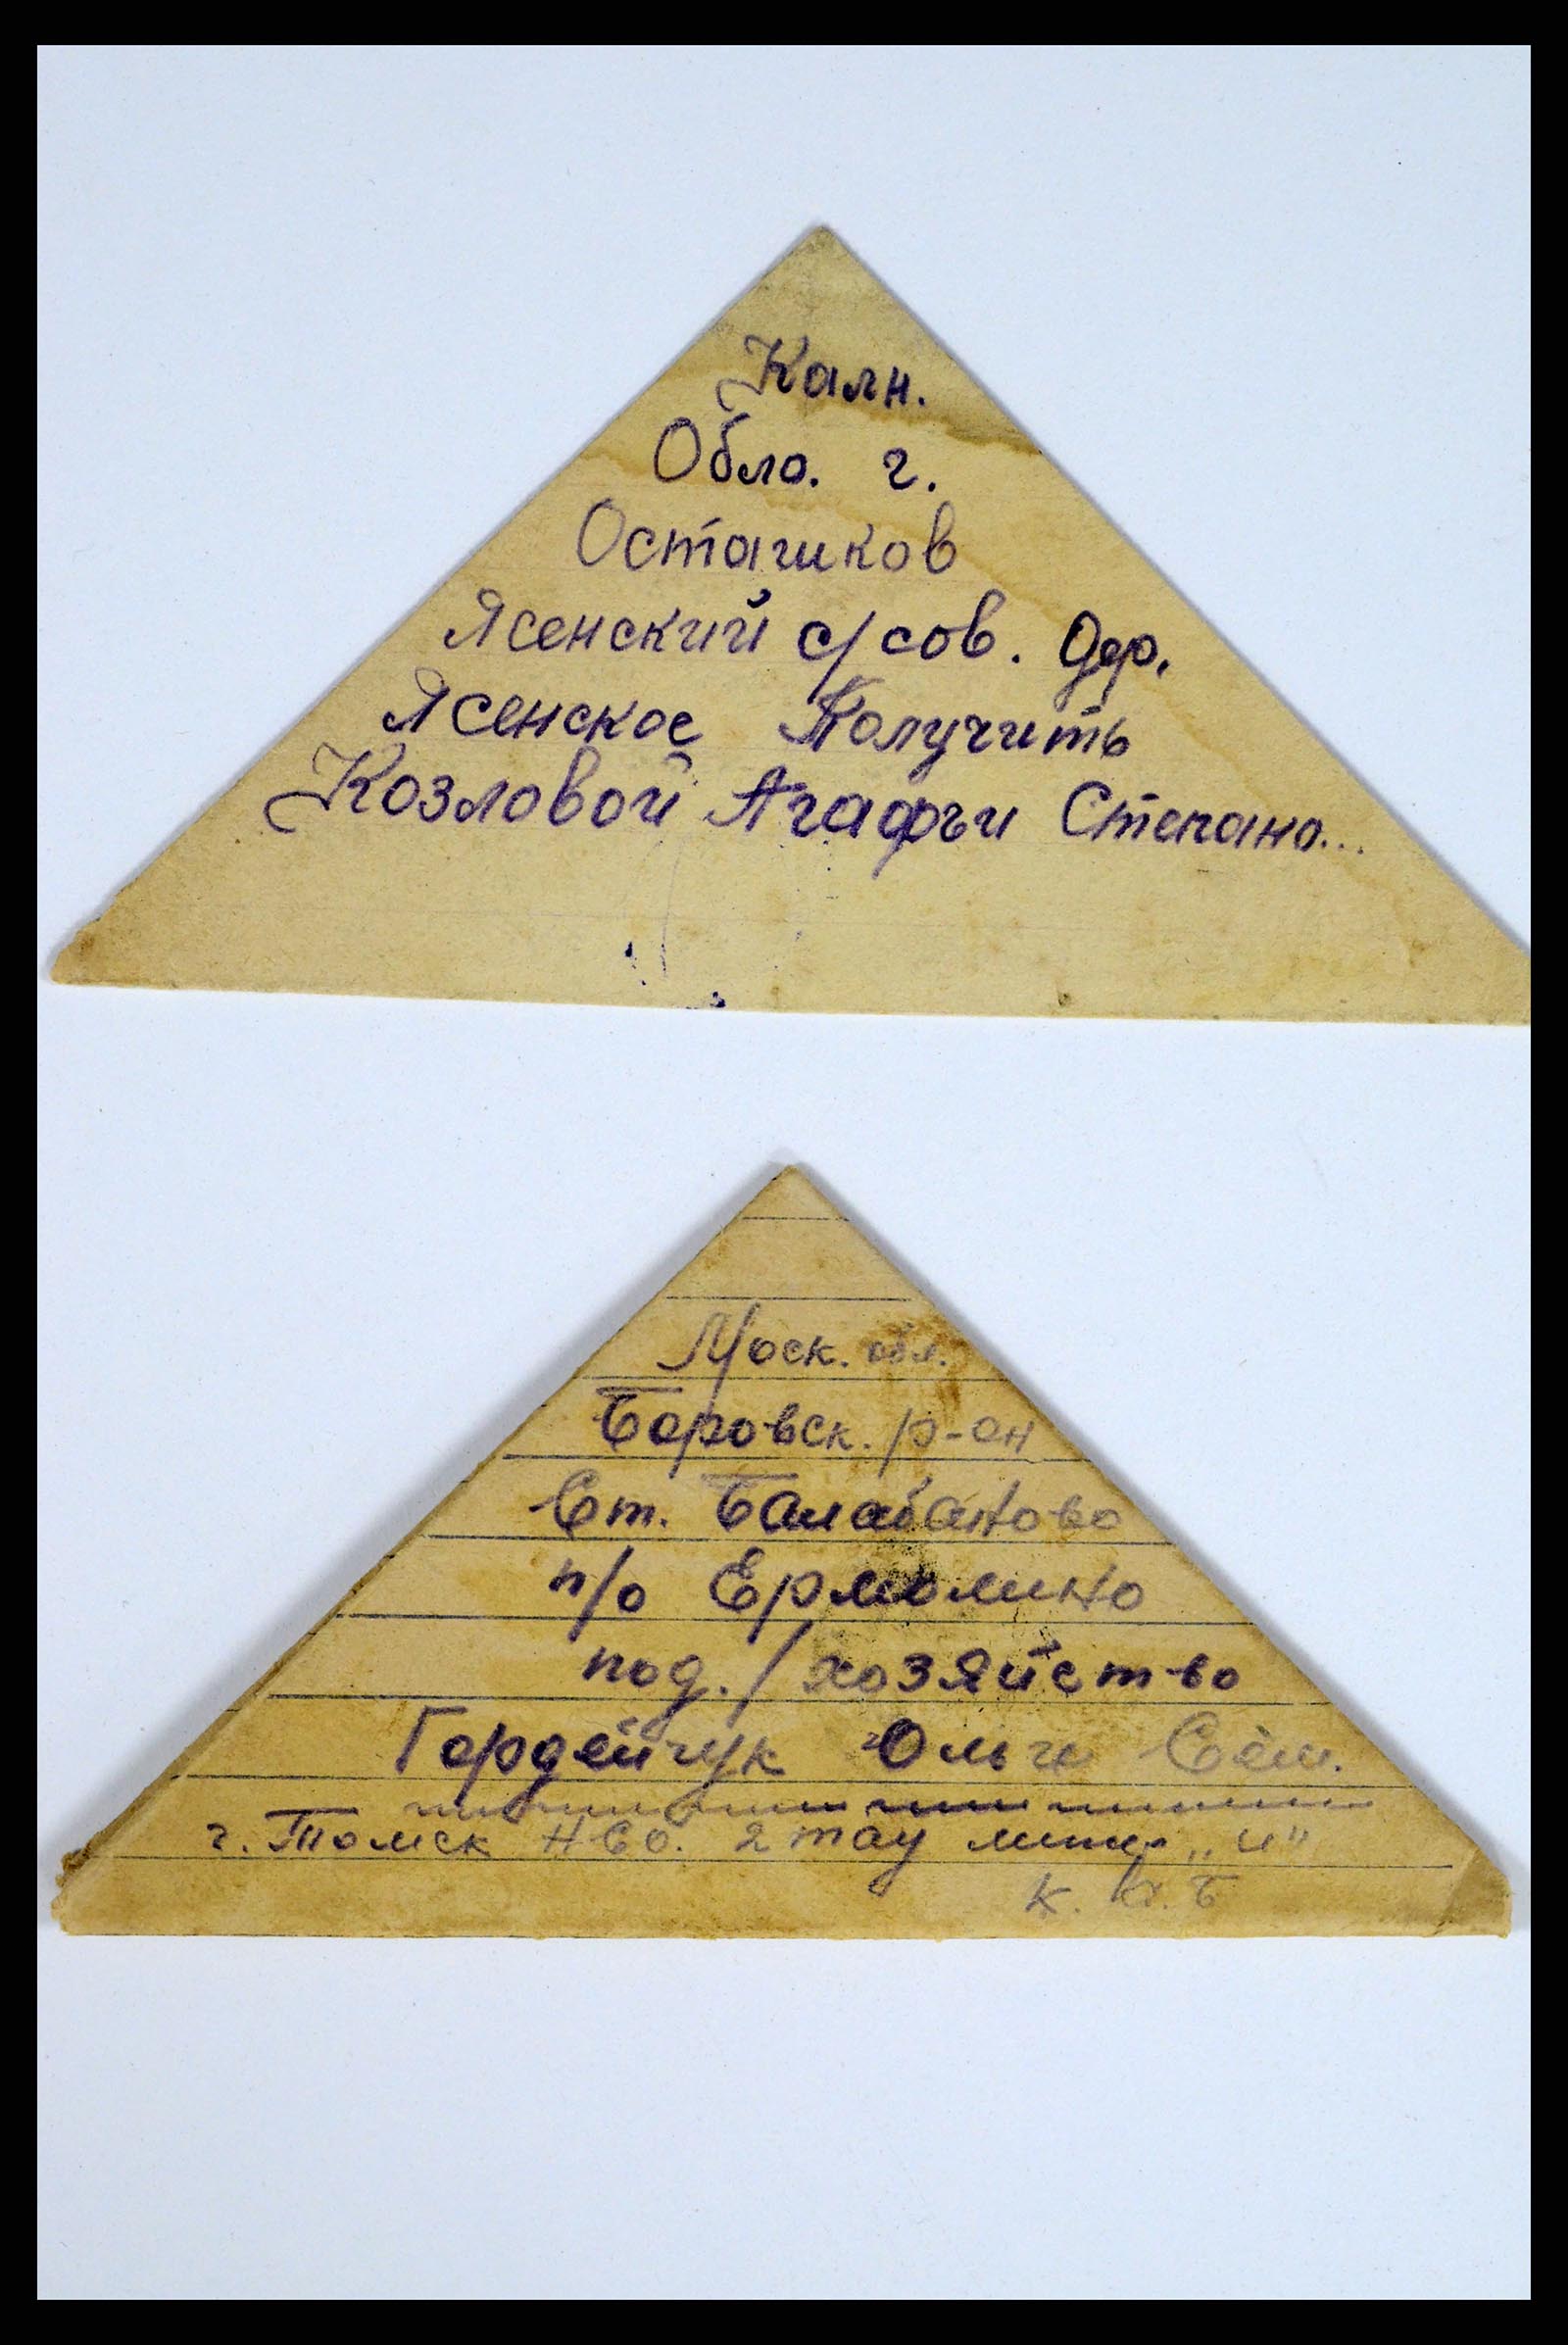 Калн.
Обло. г.
Осташков
Ясенский с/сов. Дер.
Ясенское Получить
Козловой Агафьи Степано...
Моск. обл.
Боровск. р-он
Ст. Балабаново
п/о Ермолино
под./хозяйство
Гордейчук Ольге Сем.
г. Томск НСО. 2 ТАУ "и"
к.